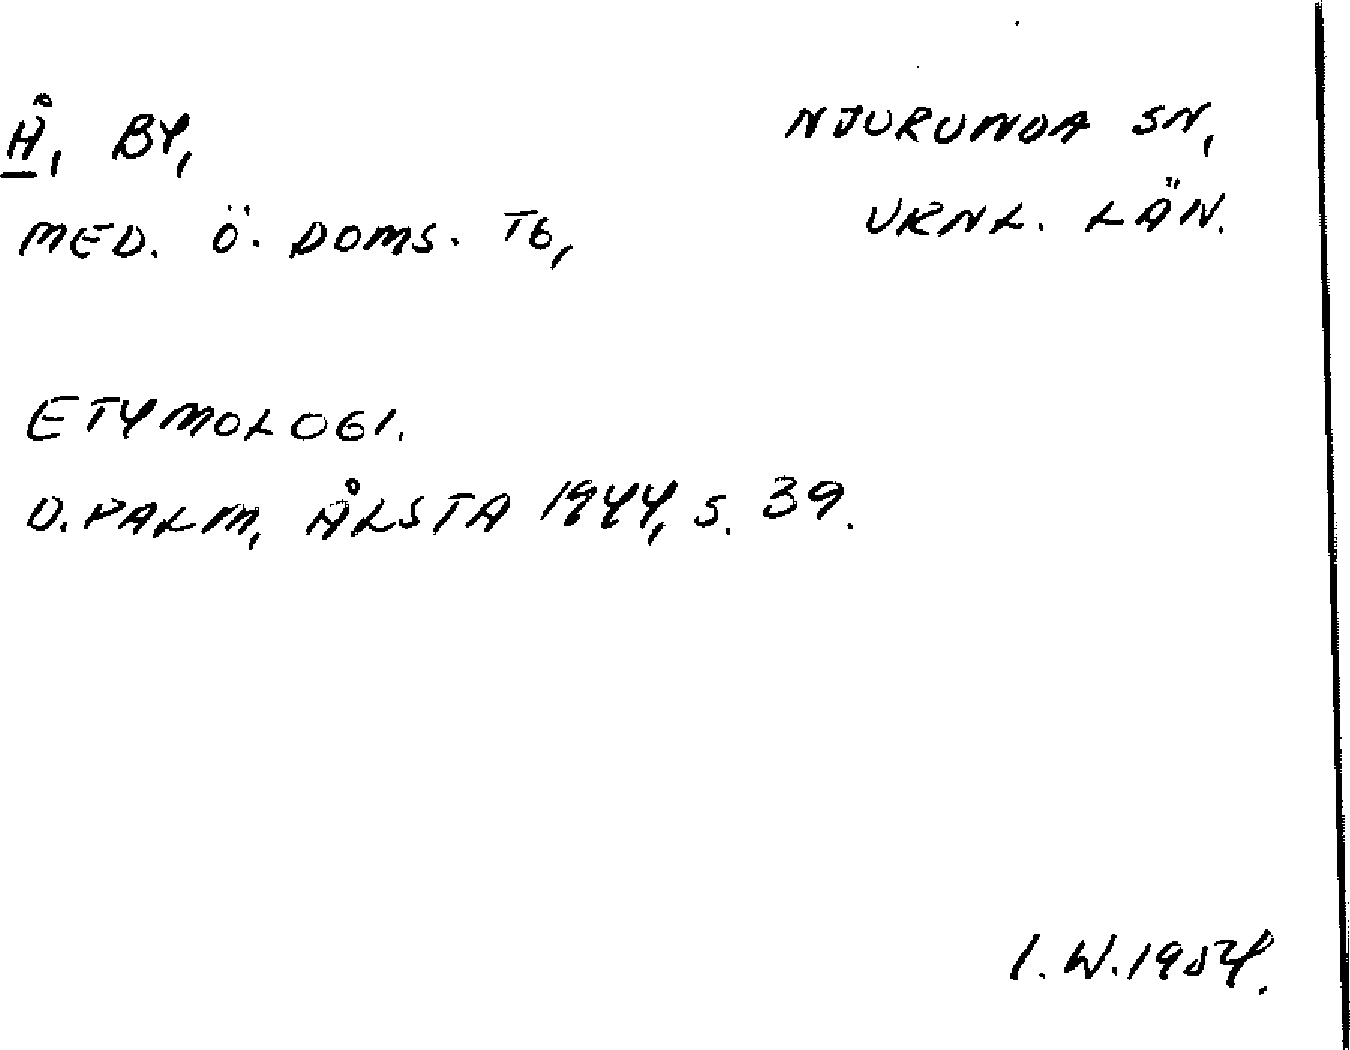 Å, BY,
NJURUNDA SN,
MED. Ö. DOMS. TG,
VRNL. LÄN.
ETYMOLOGI.
D. PALM, ÅLSTA 1944, S. 39.
I. W. 1954.